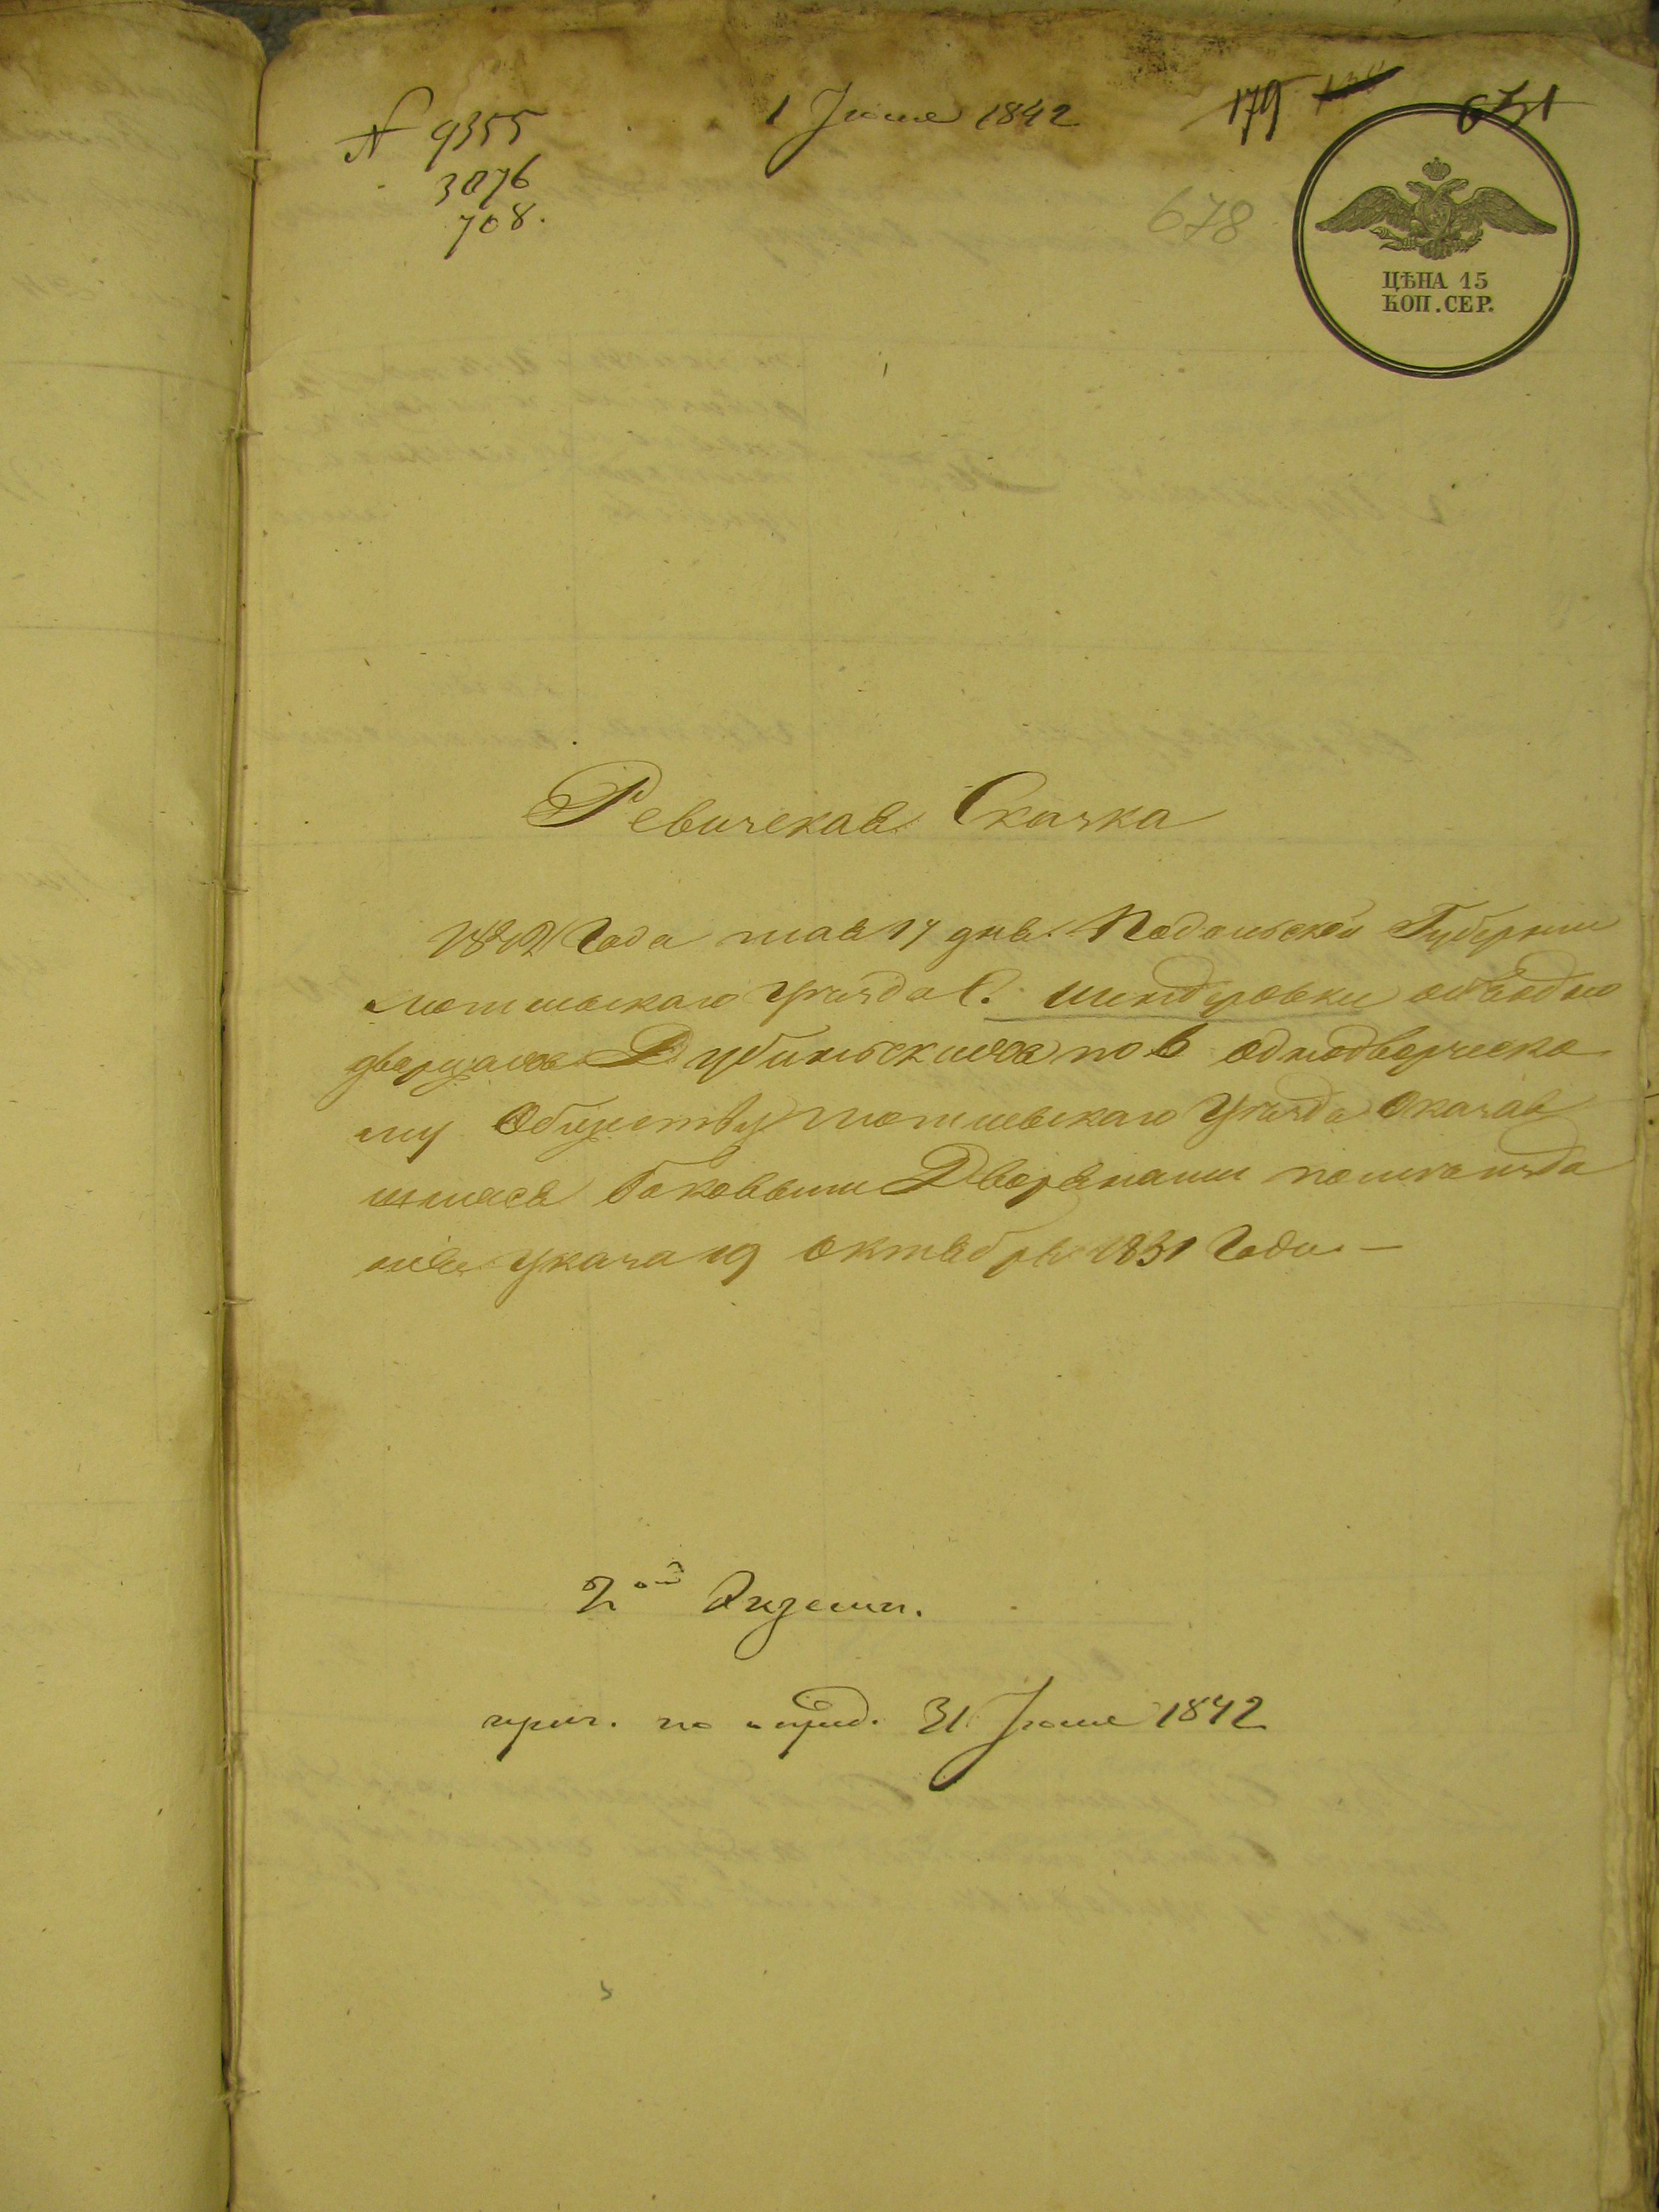 № 9355
3076
708.
1 Июня 1842
179
651
678
ЦѢНА 15
КОП. СЕР.
Ревизская Сказка
1842 Года мая 17 дня. Подольской Губернии
Могилевскаго Уезда С. Шендеровки о
дворцахъ Дубиньскихъ по 6 однодворческо
му Обществу Могилевскаго Уезда Оказав
шихся таковыми Дворянами
Указа 19 Октября 1831 Года. —
2ой
31 Июня 1842